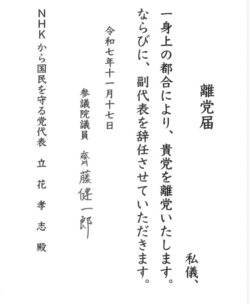 離党届
私儀、
一身上の都合により、貴党を離党いたします。
ならびに、副代表を辞任させていただきます。
令和七年十一月十七日
参議院議員 齊藤健一郎
NHKから国民を守る党代表 立花孝志 殿